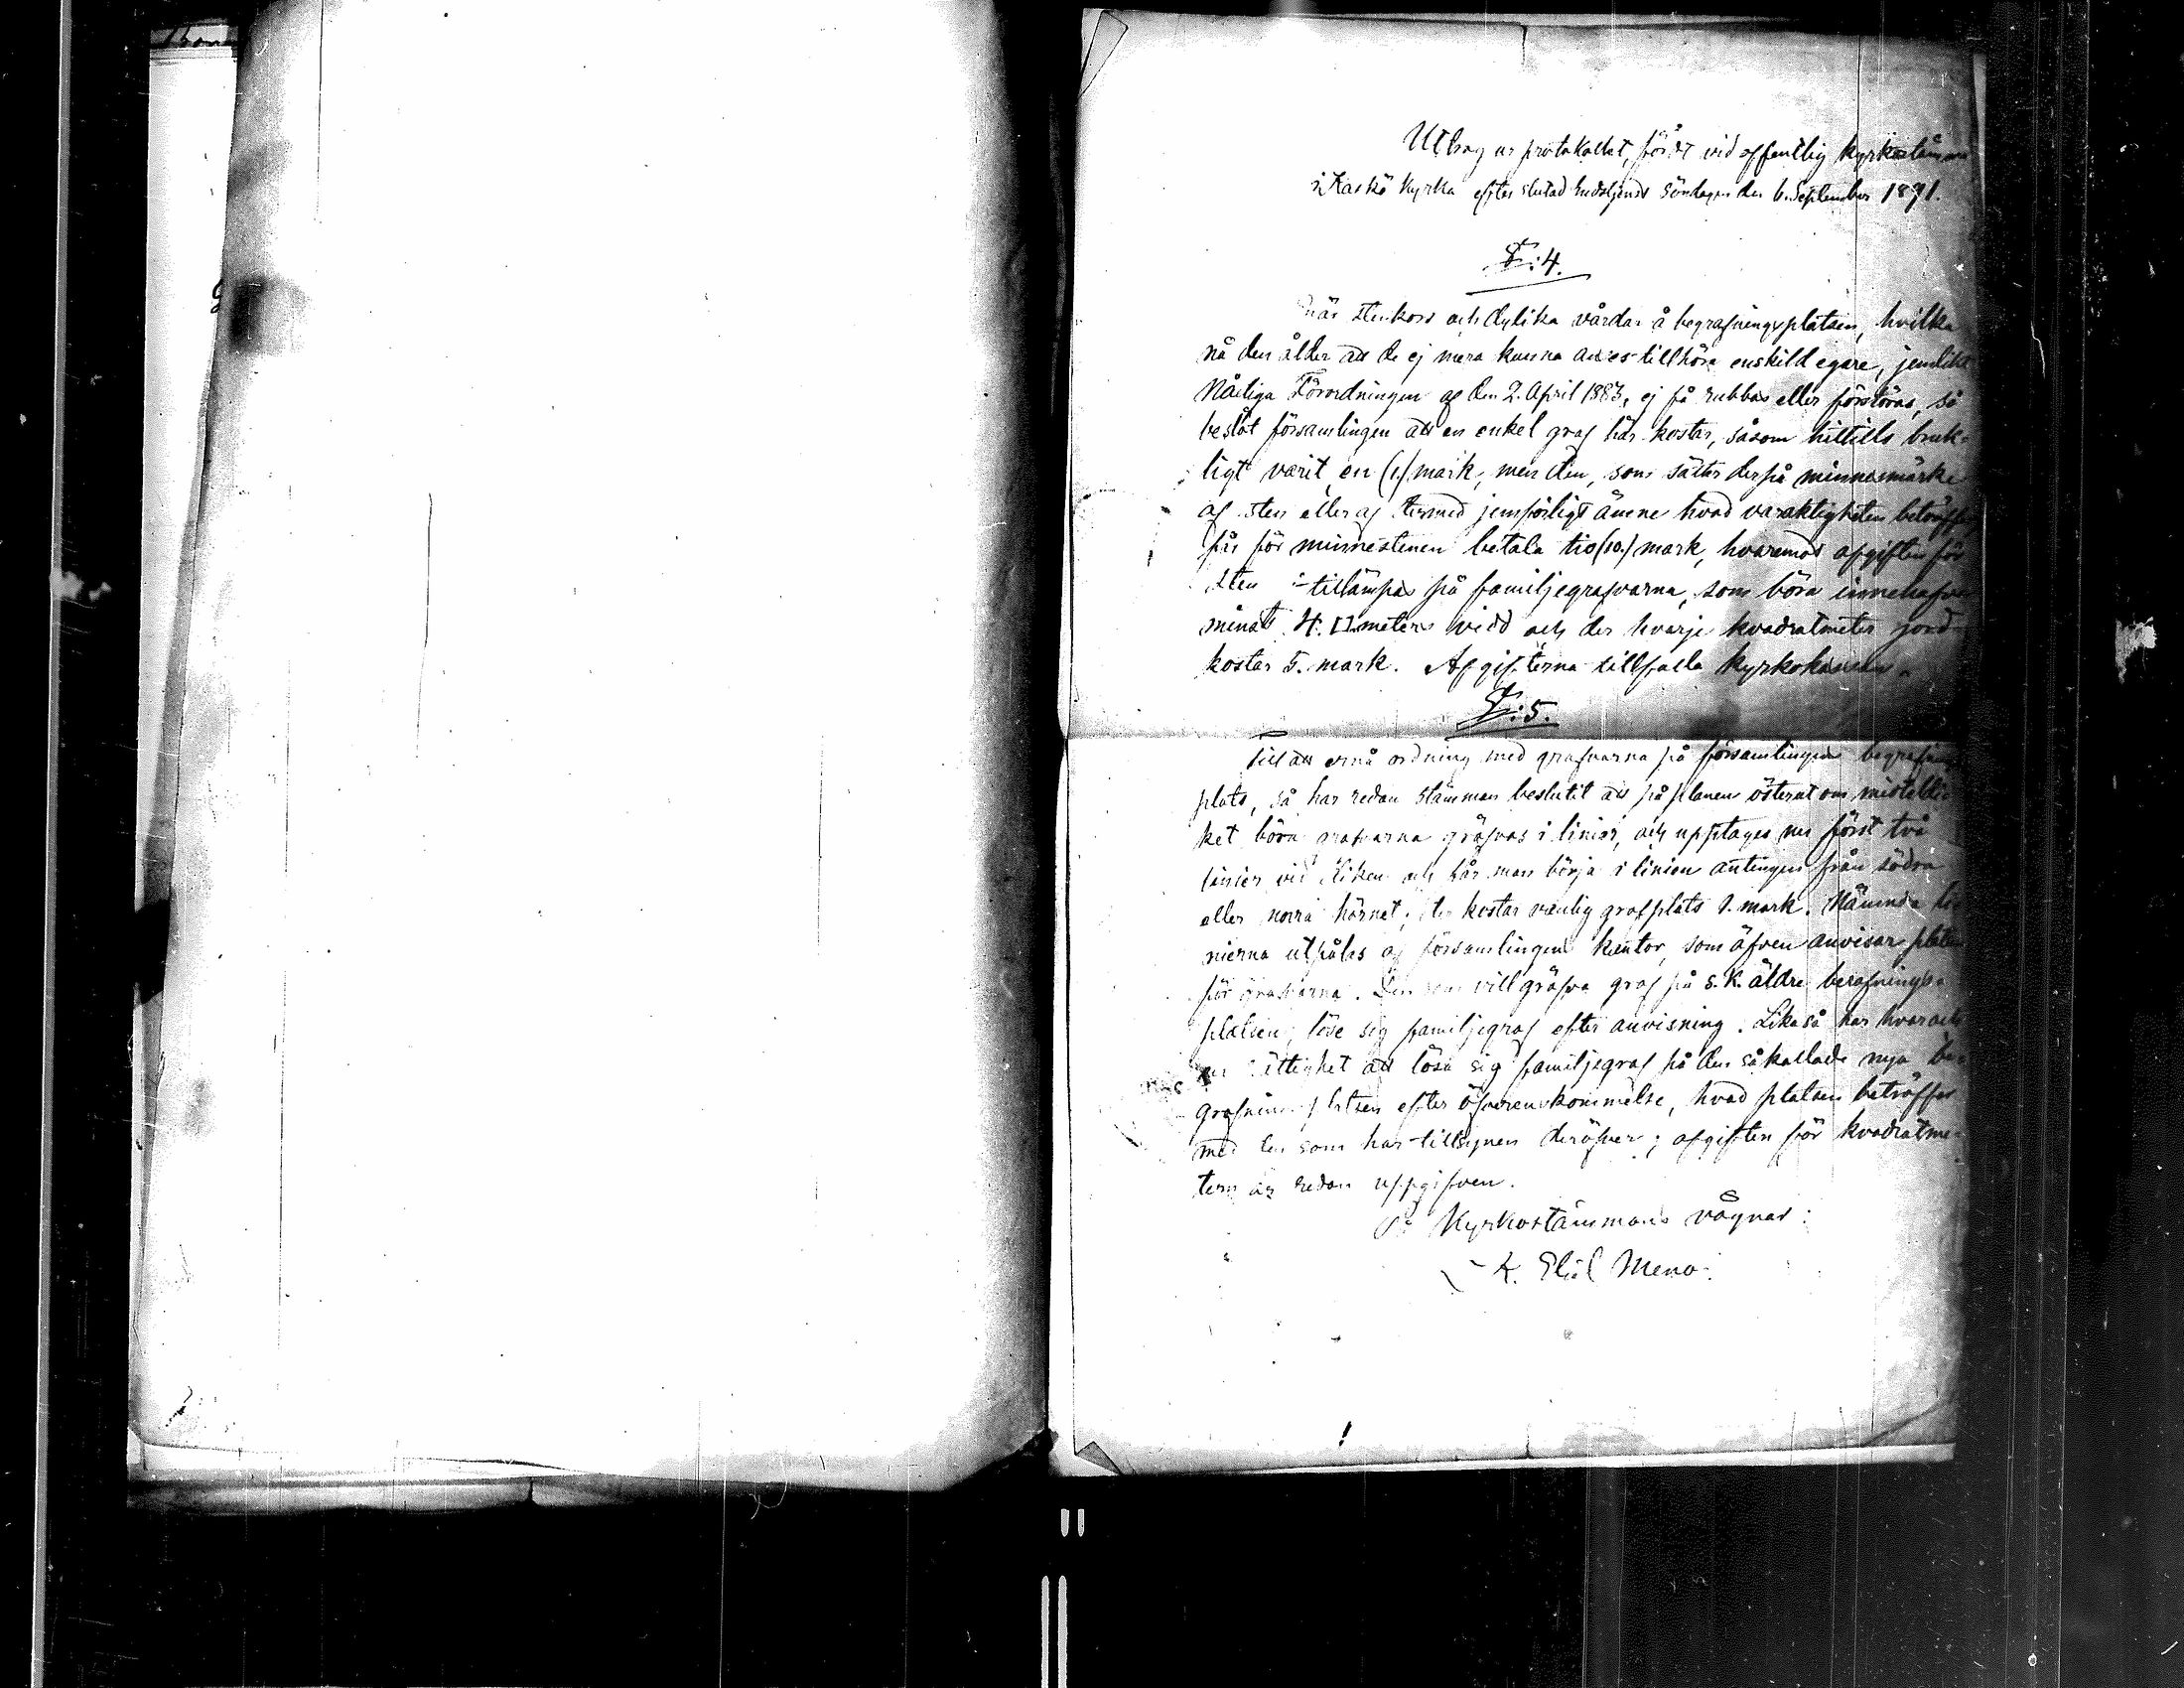 Utdrag ur protokollet, fördt vid offentlig kyrkostämma
i Kaskö kyrka efter slutad Gudstjenst Söndagen den 6. September 1891.
§:4.
när stenkors och dylika vårdar å begrafningsplatsen, hvilka
nå den ålder att de ej mera kunna anses tillhöra enskild egare, jemlikt
Nådiga Förordningen af den 2. April 1883, ej få rubbas eller förstöras, så
beslöt församlingen att en enkel graf här kostar, såsom hittills bruk-
ligt varit en (1.) mark, men den, som sätter derpå minnesmärke
af sten eller af dermed jemförligt ämne hvad varaktigheten beträffar
får för minnestenen betala tio (10.) mark, hvaremot afgiften för
sten ej tillämpas på familjegrafvarna, som böra innehafva
minst 4. □ meters vidd och der hvarje kvadratmeter jord
kostar 5. mark. Afgifterna tillfalla kyrkokassan.
§:5.
Till att ernå ordning med grafvarna på församlingens begrafnings
plats, så har redan stämman beslutit att på planen österut om
ket böra grafvarna gräfvas i linier, och upptages nu först två
linier vid diken och får man börja i linien antingen från södra
eller norra hörnet; der kostar vanlig grafplats 1. mark. Nämnda li-
nierna utpålas af församlingens kantor, som äfven anvisar platsen
för grafvarna. Den som vill gräfva graf på s.k. äldre berafnings-
platsen, löse sig familjegraf efter anvisning. Likaså har hvar och
en rättighet att lösa sig familjegraf på den såkallade nya be-
grafningsplatsen efter öfverenskommelse, hvad platsen beträffar
med den som har tillsynen deröfver; afgiften för kvadratme-
tern är redan uppgifven.
På Kyrkostämmans vägnar:
K. Eliel Meno.